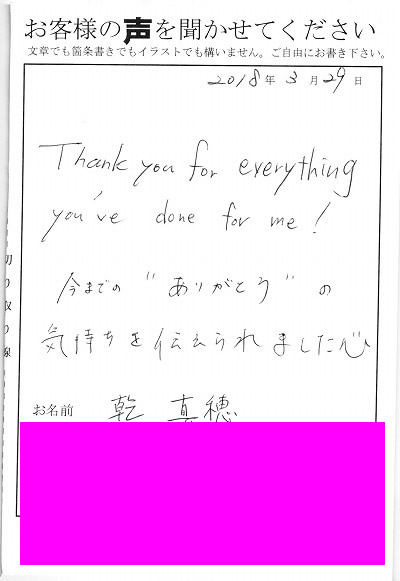 お客様の声を聞かせてください
文章でも箇条書きでもイラストでも構いません。ご自由にお書き下さい。
2018年 3月29日
Thank you for everything
you've done for me!
今までの "ありがとう" の
気持ちを伝えられました心
お名前 乾 真穂
切り取り線